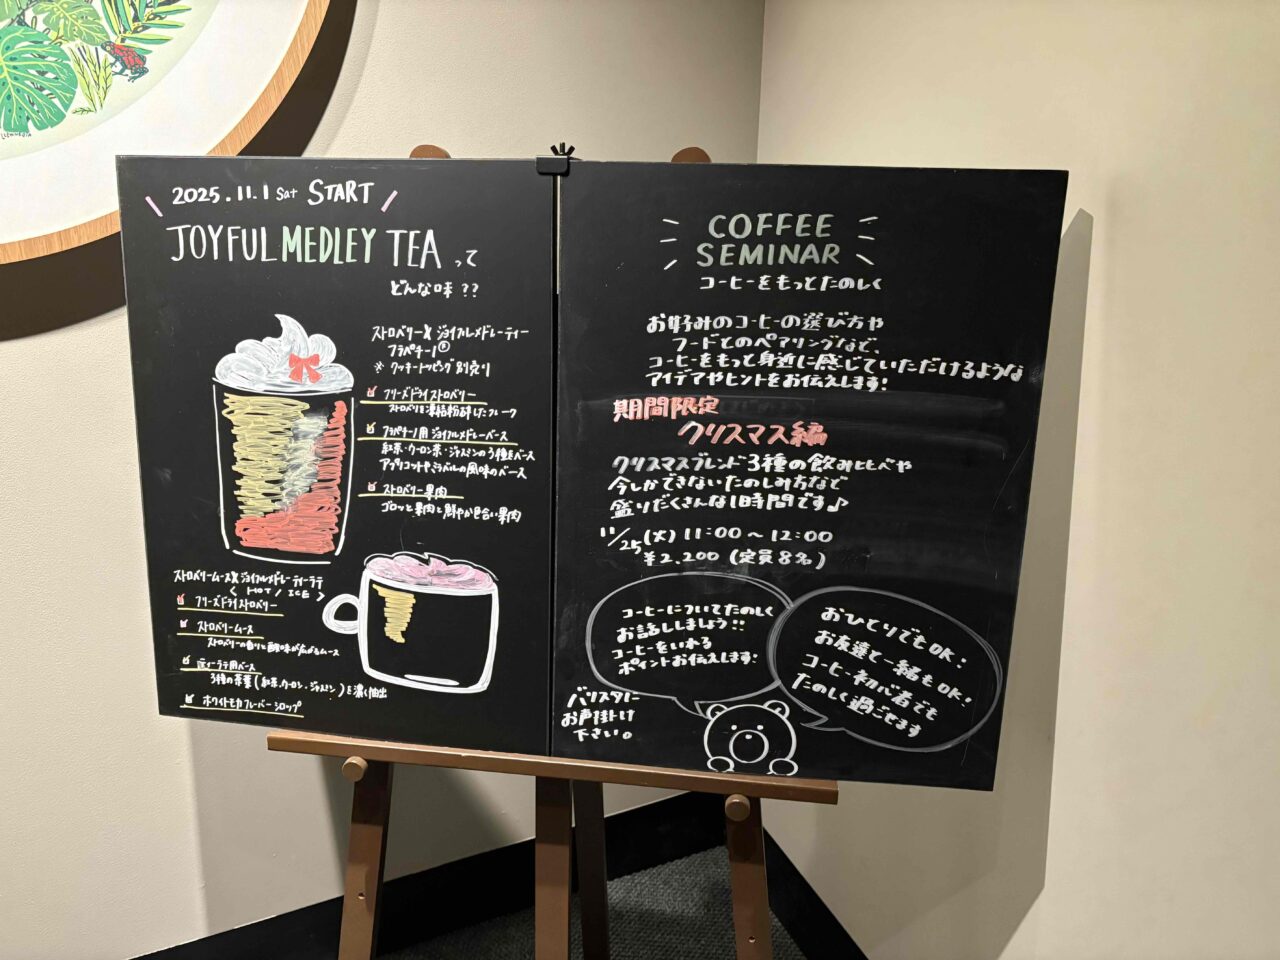 2025.11.1 Sat START
JOYFUL MEDLEY TEA って
どんな味??
ストロベリー&ジョイフルメドレーティー
フラペチーノ®
※クッキートッピング別売り
フリーズドライストロベリー
ストロベリーを凍結粉砕したフレーク
フラペチーノ用ジョイフルメドレーベース
紅茶・ウーロン茶・ジャスミンの3種をベース
アプリコットやミラベルの風味のベース
ストロベリー果肉
ゴロッと果肉と鮮やか色合い果肉
ストロベリームース&ジョイフルメドレーティーラテ
〈HOT/ICE〉
フリーズドライストロベリー
ストロベリームース
ストロベリーの香りと酸味が広がるムース
ティーラテ用ベース
3種の茶葉(紅茶、ウーロン、ジャスミン)を濃く抽出
ホワイトモカフレーバーシロップ
COFFEE
SEMINAR
コーヒーをもっとたのしく
お好みのコーヒーの選び方や
フードとのペアリングなど、
コーヒーをもっと身近に感じていただけるような
アイデアやヒントをお伝えします!
期間限定
クリスマス編
クリスマスブレンド3種の飲み比べや
今しかできないたのしみ方など
盛りだくさんな1時間です♪
11/25(火) 11:00~12:00
¥2,200 (定員8名)
コーヒーについてたのしく
お話ししましょう!!
コーヒーをいれる
ポイントお伝えします!
おひとりでもOK!
お友達と一緒もOK!
コーヒー初心者でも
たのしく過ごせます
バリスタに
お声掛け
下さい。